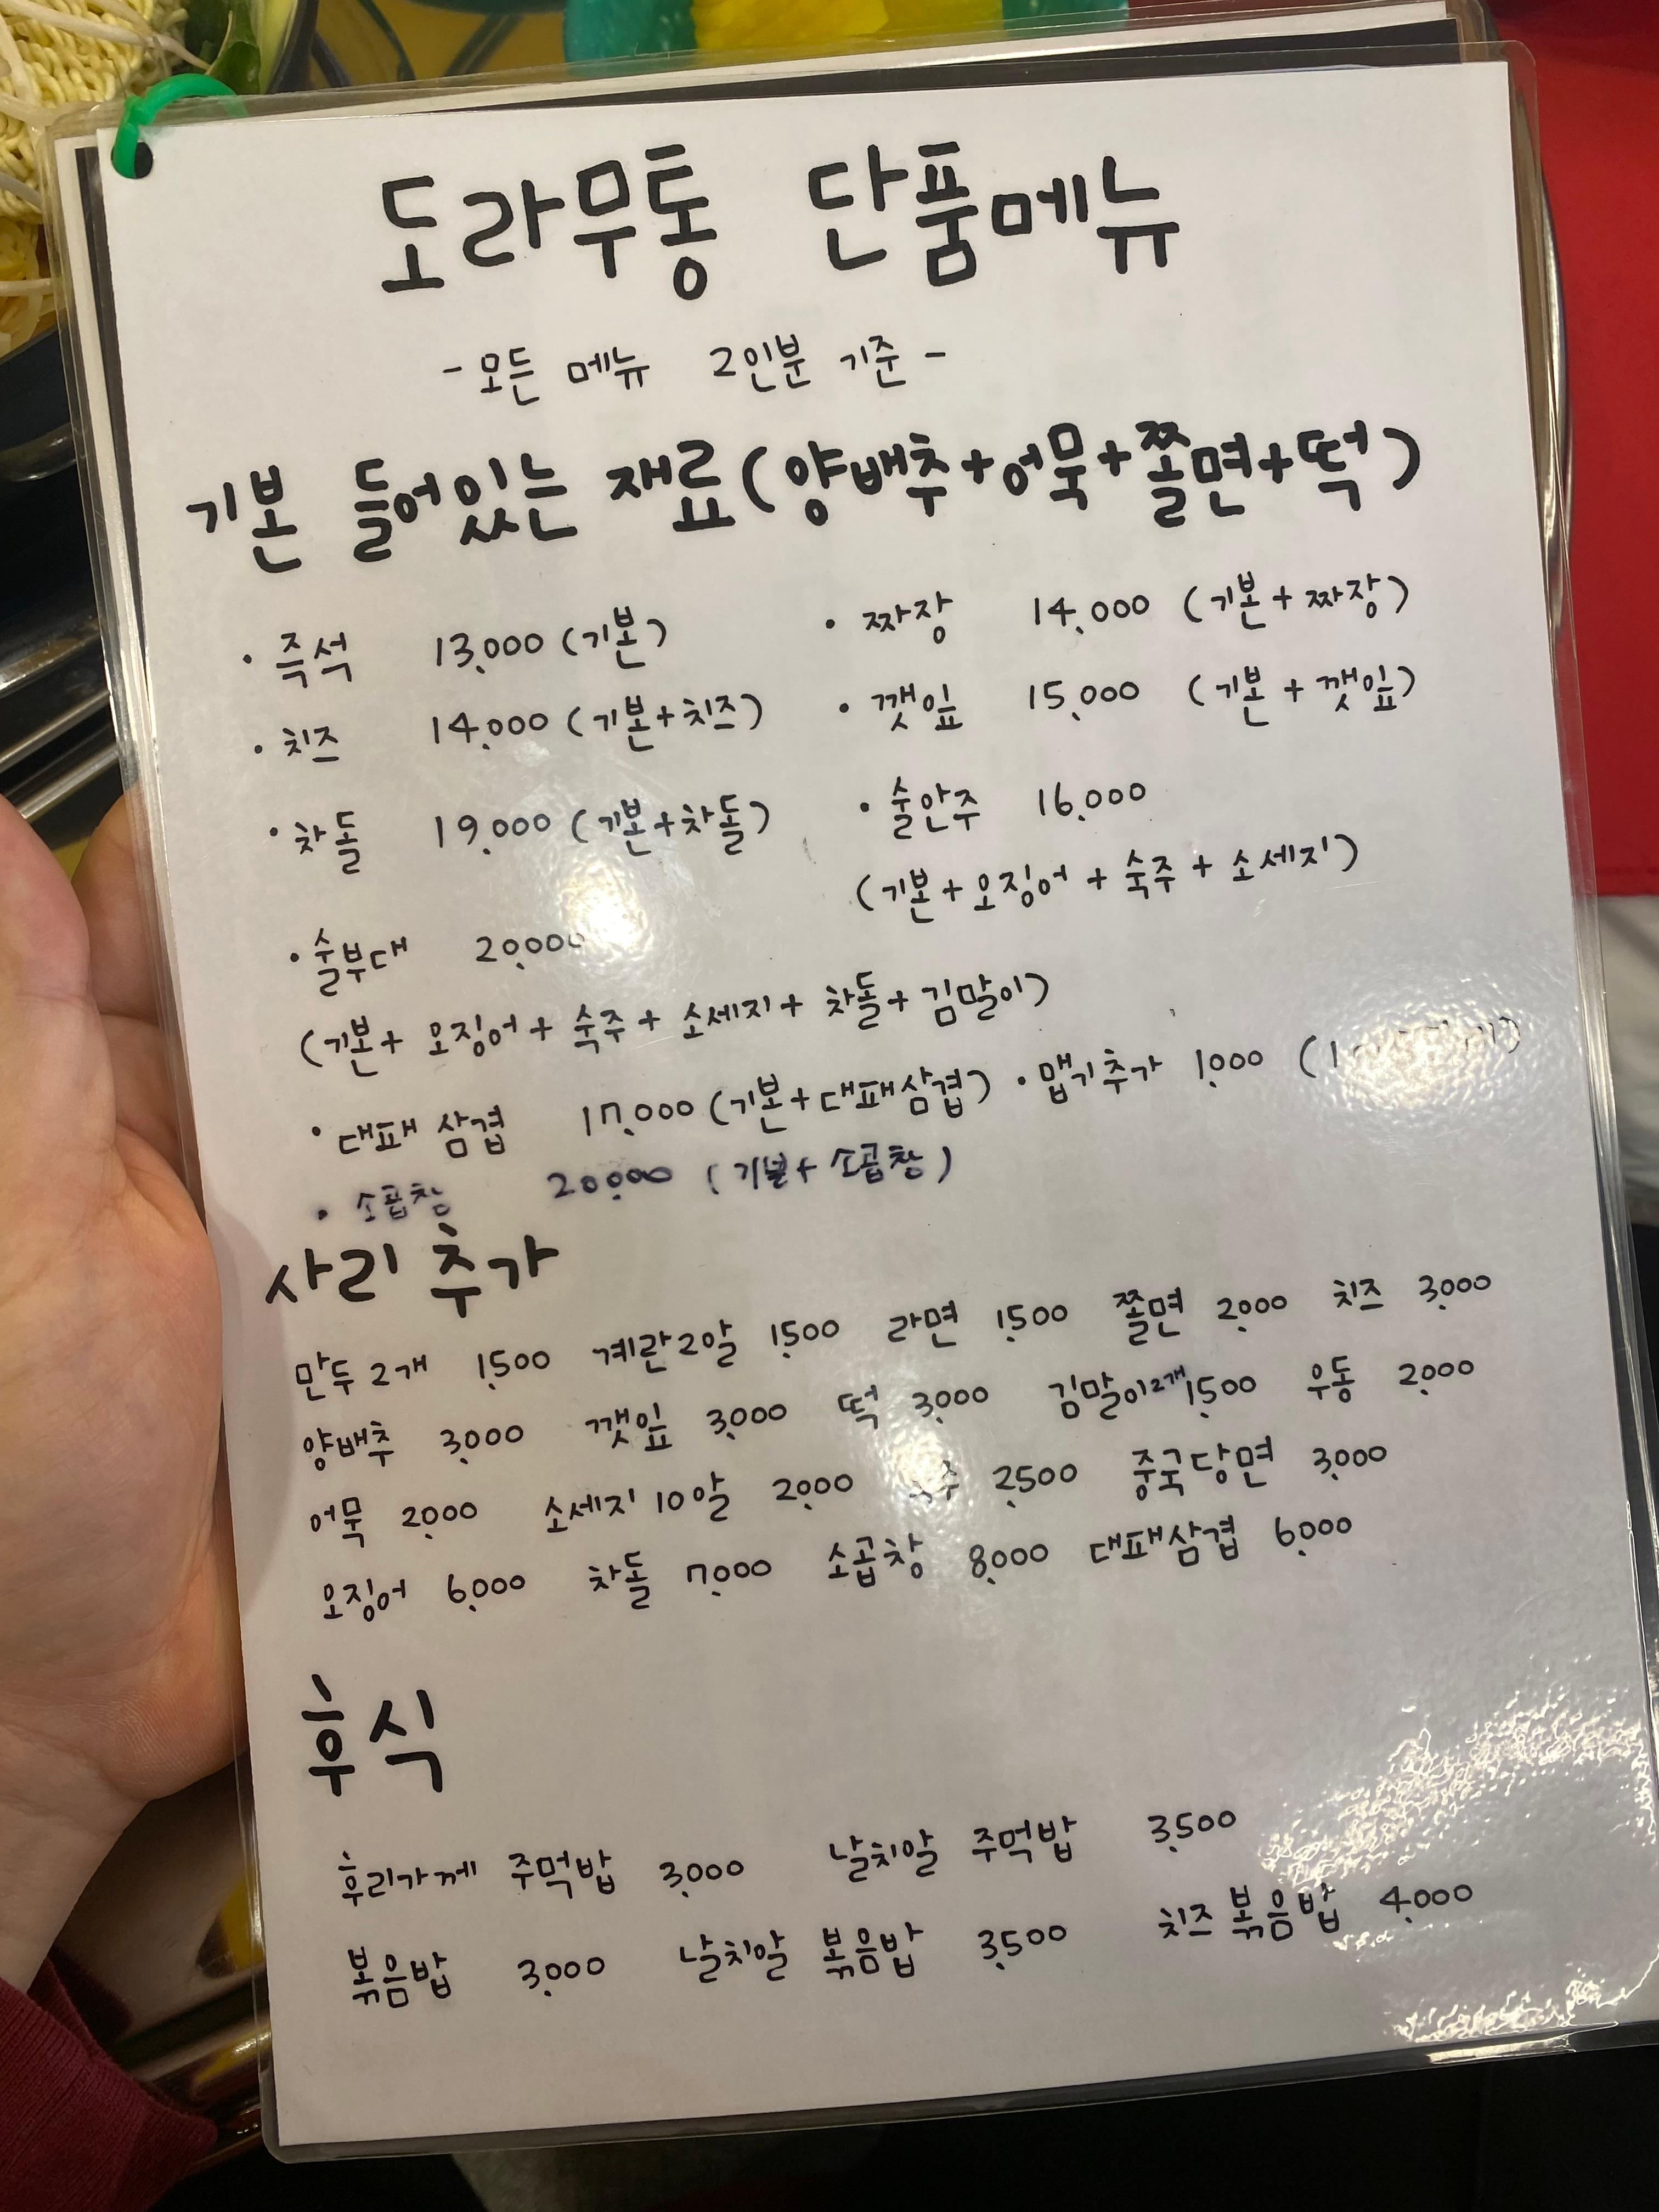 도라무통 단품메뉴
- 모든 메뉴 2인분 기준 -
기본 들어있는 재료(양배추+어묵+쫄면+떡)
· 즉석 13,000 (기본) · 짜장 14,000 (기본+짜장)
· 치즈 14,000 (기본+치즈) · 깻잎 15,000 (기본+깻잎)
· 차돌 19,000 (기본+차돌) · 술안주 16,000
(기본+오징어+숙주+소세지)
· 술부대 20,000
(기본+오징어+숙주+소세지+차돌+김말이)
· 대패삼겹 17,000 (기본+대패삼겹) · 맵기추가 1,000 (1
· 소곱창 20,000 (기본+소곱창)
사리 추가
만두2개 1,500 계란2알 1,500 라면 1,500 쫄면 2,000 치즈 3,000
양배추 3,000 깻잎 3,000 떡 3,000 김말이2개 1,500 우동 2,000
어묵 2,000 소세지 10알 2,000 2,500 중국당면 3,000
오징어 6,000 차돌 7,000 소곱창 8,000 대패삼겹 6,000
후식
후리가께 주먹밥 3,000 날치알 주먹밥 3,500
볶음밥 3,000 날치알 볶음밥 3,500 치즈 볶음밥 4,000